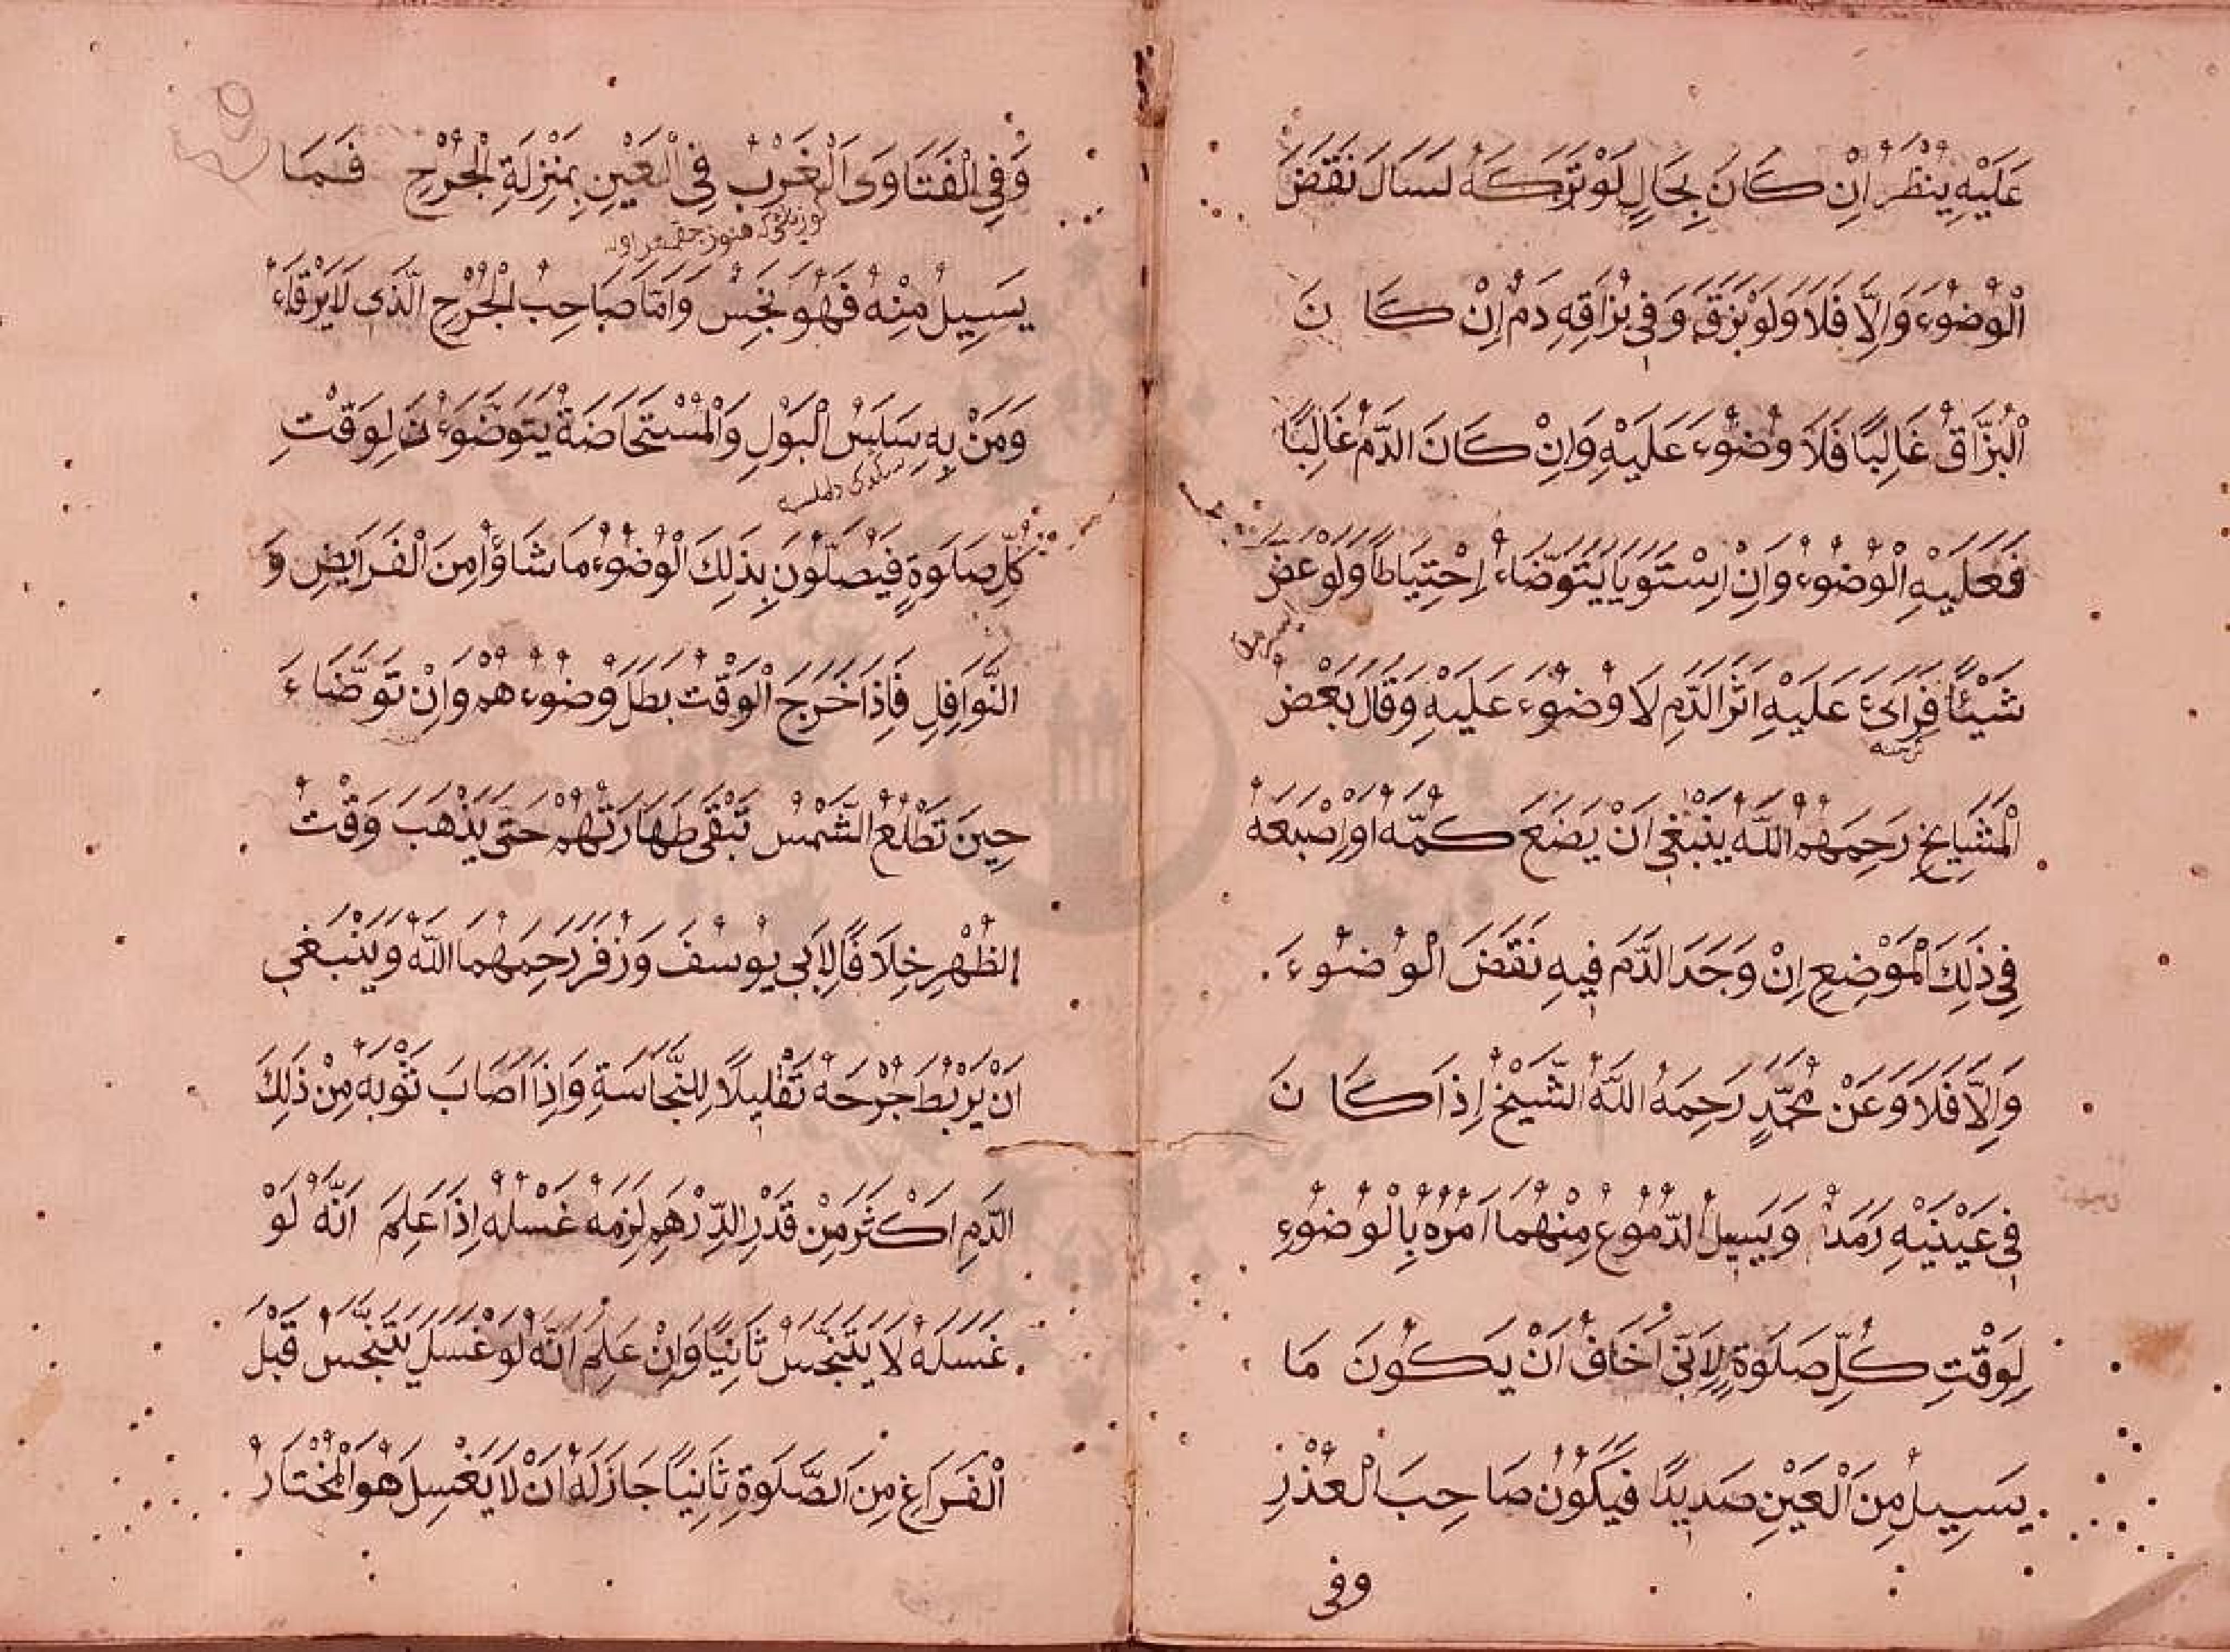 عَلَيْهِ يُنْظَرُ اِنْ كَانَ بِحَالٍ لَوْ تَرَكَهُ لَسَالَ نَقَضَ
الْوُضُوءَ وَاِلَّا فَلَا وَلَوْ بَزَقَ وَفِي بُزَاقِهِ دَمٌ اِنْ كَانَ
الْبُزَاقُ غَالِبًا فَلَا وُضُوءَ عَلَيْهِ وَاِنْ كَانَ الدَّمُ غَالِبًا
فَعَلَيْهِ الْوُضُوءُ وَاِنْ اِسْتَوَيَا يَتَوَضَّاءُ اِحْتِيَاطًا وَلَوْ عَضَّ
شَيْئًا فَرَاَىَٔ عَلَيْهِ اَثَرَ الدَّمِ لَا وُضُوءَ عَلَيْهِ وَقَالَ بَعْضُ
الْمَشَايِخِ رَحِمَهُمُ اللّٰهُ يَنْبَغِي اَنْ يَضَعَ كُمَّهُ اَوْ اِصْبَعَهُ
فِي ذَلِكَ الْمَوْضِعِ اِنْ وَجَدَ الدَّمَ فِيهِ نَقَضَ الْوُضُوءَ
وَاِلَّا فَلَا وَعَنْ مُحَمَّدٍ رَحِمَهُ اللّٰهُ الشَّيْخُ اِذَا كَانَ
فِي عَيْنَيْهِ رَمَدٌ وَيَسِيلُ الدُّمُوعُ مِنْهُمَا اٰمُرُهُ بِالْوُضُوءِ
لِوَقْتِ كُلِّ صَلَوةٍ لِاَنِّي اَخَافُ اَنْ يَكُونَ مَا
يَسِيلُ مِنَ الْعَيْنِ صَدِيدًا فَيَكُونُ صَاحِبَ الْعُذْرِ
وفى
وَفِي الْفَتَاوَى اَلْغَرْبُ فِي الْعَيْنِ بِمَنْزِلَةِ الْجُرْحِ فَمَا
يَسِيلُ مِنْهُ فَهُوَ نَجِسٌ وَاَمَّا صَاحِبُ الْجُرْحِ الَّذِى لَا يَرْقَاءُ
وَمَنْ بِهِ سَلَسُ الْبَوْلِ وَالْمُسْتَحَاضَةُ يَتَوَضَّوءُنَ لِوَقْتِ
كُلِّ صَلَوةٍ فَيُصَلُّونَ بِذَلِكَ الْوُضُوءُ مَا شَاؤُا مِنَ الْفَرَايِضِ وَ
النَّوَافِلِ فَاِذَا خَرَجَ الْوَقْتُ بَطَلَ وُضُوءُهُمْ وَاِنْ تَوَضَّاءَ
حِينَ تَطْلُعُ الشَّمْسُ تَبْقَى طَهَارَتُهُمْ حَتَّى يَذْهَبَ وَقْتُ
الظُّهْرِ خِلَافًا لِاَبِي يُوسُفَ وَزُفَرَ رَحِمَهُمَا اللّٰهُ وَيَنْبَغِي
اَنْ يَرْبُطَ جُرْحَهُ تَقْلِيلًا لِلنَّجَاسَةِ وَاِذَا اَصَابَ ثَوْبَهُ مِنْ ذَلِكَ
الدَّمِ اَكْثَرَ مِنْ قَدْرِ الدِّرْهَمِ لَزِمَهُ غَسْلُهُ اِذَا عَلِمَ اَنَّهُ لَوْ
غَسَلَهُ لَا يَتَنَجَّسُ ثَانِيًا وَاِنْ عَلِمَ اَنَّهُ لَوْ غَسَلَ يَتَنَجَّسُ قَبْلَ
الْفَرَاغِ مِنَ الصَّلَوةِ ثَانِيًا جَازَ لَهُ اَنْ لَا يَغْسِلَ هُوَ الْمُخْتَارُ